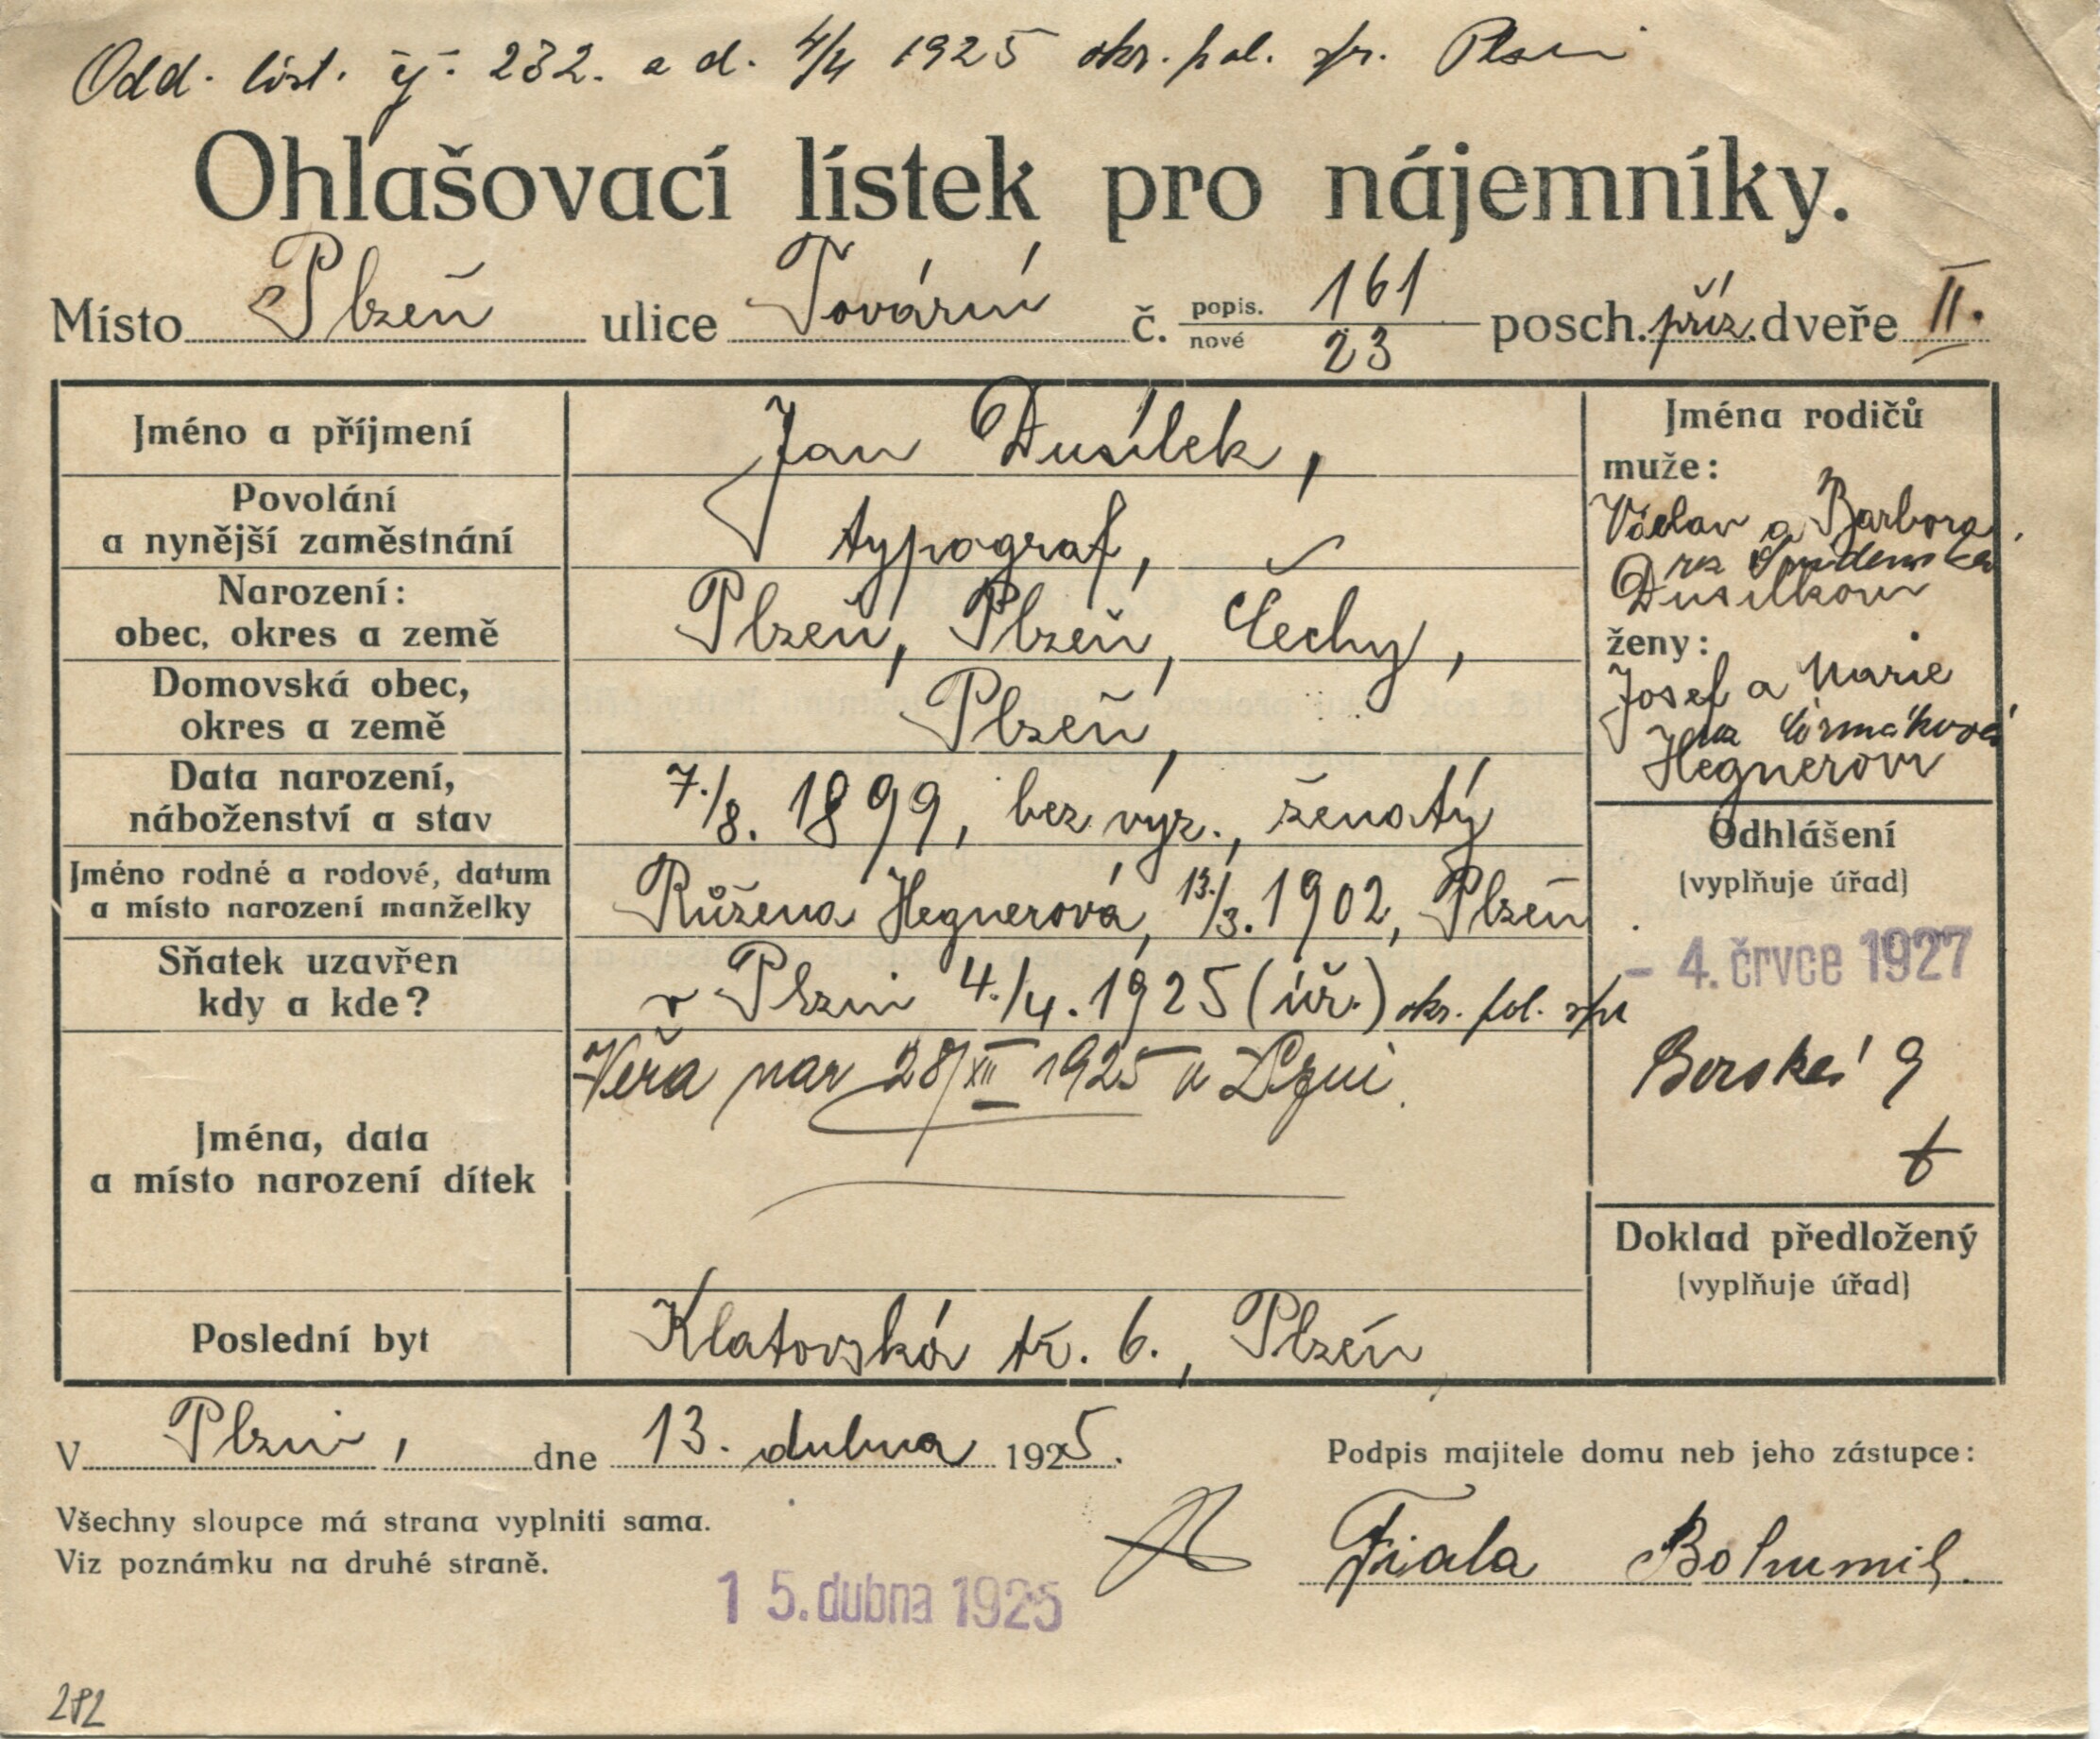 Odd. list. čj. 232. a d. 4/4 1925 okr. pol. spr. Plzni
Ohlašovací lístek pro nájemníky.
Místo Plzeň ulice Tovární č. popis. 161 nové 23 posch. příz. dveře II.
Jméno a příjmení
Jan Dusílek,
Povolání
a nynější zaměstnání
typograf,
Narození:
obec, okres a země
Plzeň, Plzeň, Čechy,
Domovská obec,
okres a země
Plzeň,
Data narození,
náboženství a stav
7./8. 1899, bez vyz., ženatý
Jméno rodné a rodové, datum
a místo narození manželky
Růžena Hegnerová, 13./3. 1902, Plzeň
Sňatek uzavřen
kdy a kde?
v Plzni 4./4. 1925 (úř.) okr. pol. spr
Jména, data
a místo narození dítek
Věra nar 28/XII 1925 v Plzni.
Poslední byt
Klatovská tř. 6., Plzeň
Jména rodičů
muže:
Václav a Barbora,
roz
Dusílkovi
ženy:
Josef a Marie
roz Čermáková
Hegnerovi
Odhlášení
(vyplňuje úřad)
- 4. črvce 1927
Borská 9
Doklad předložený
(vyplňuje úřad)
V Plzni, dne 13. dubna 1925.
Podpis majitele domu neb jeho zástupce:
Všechny sloupce má strana vyplniti sama.
Viz poznámku na druhé straně.
Fiala Bohumil.
15. dubna 1925
282